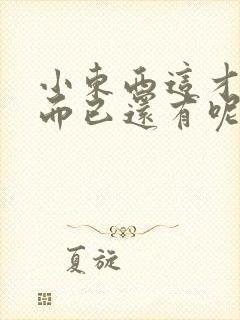 小東西這才
而已還有呢
夏旋